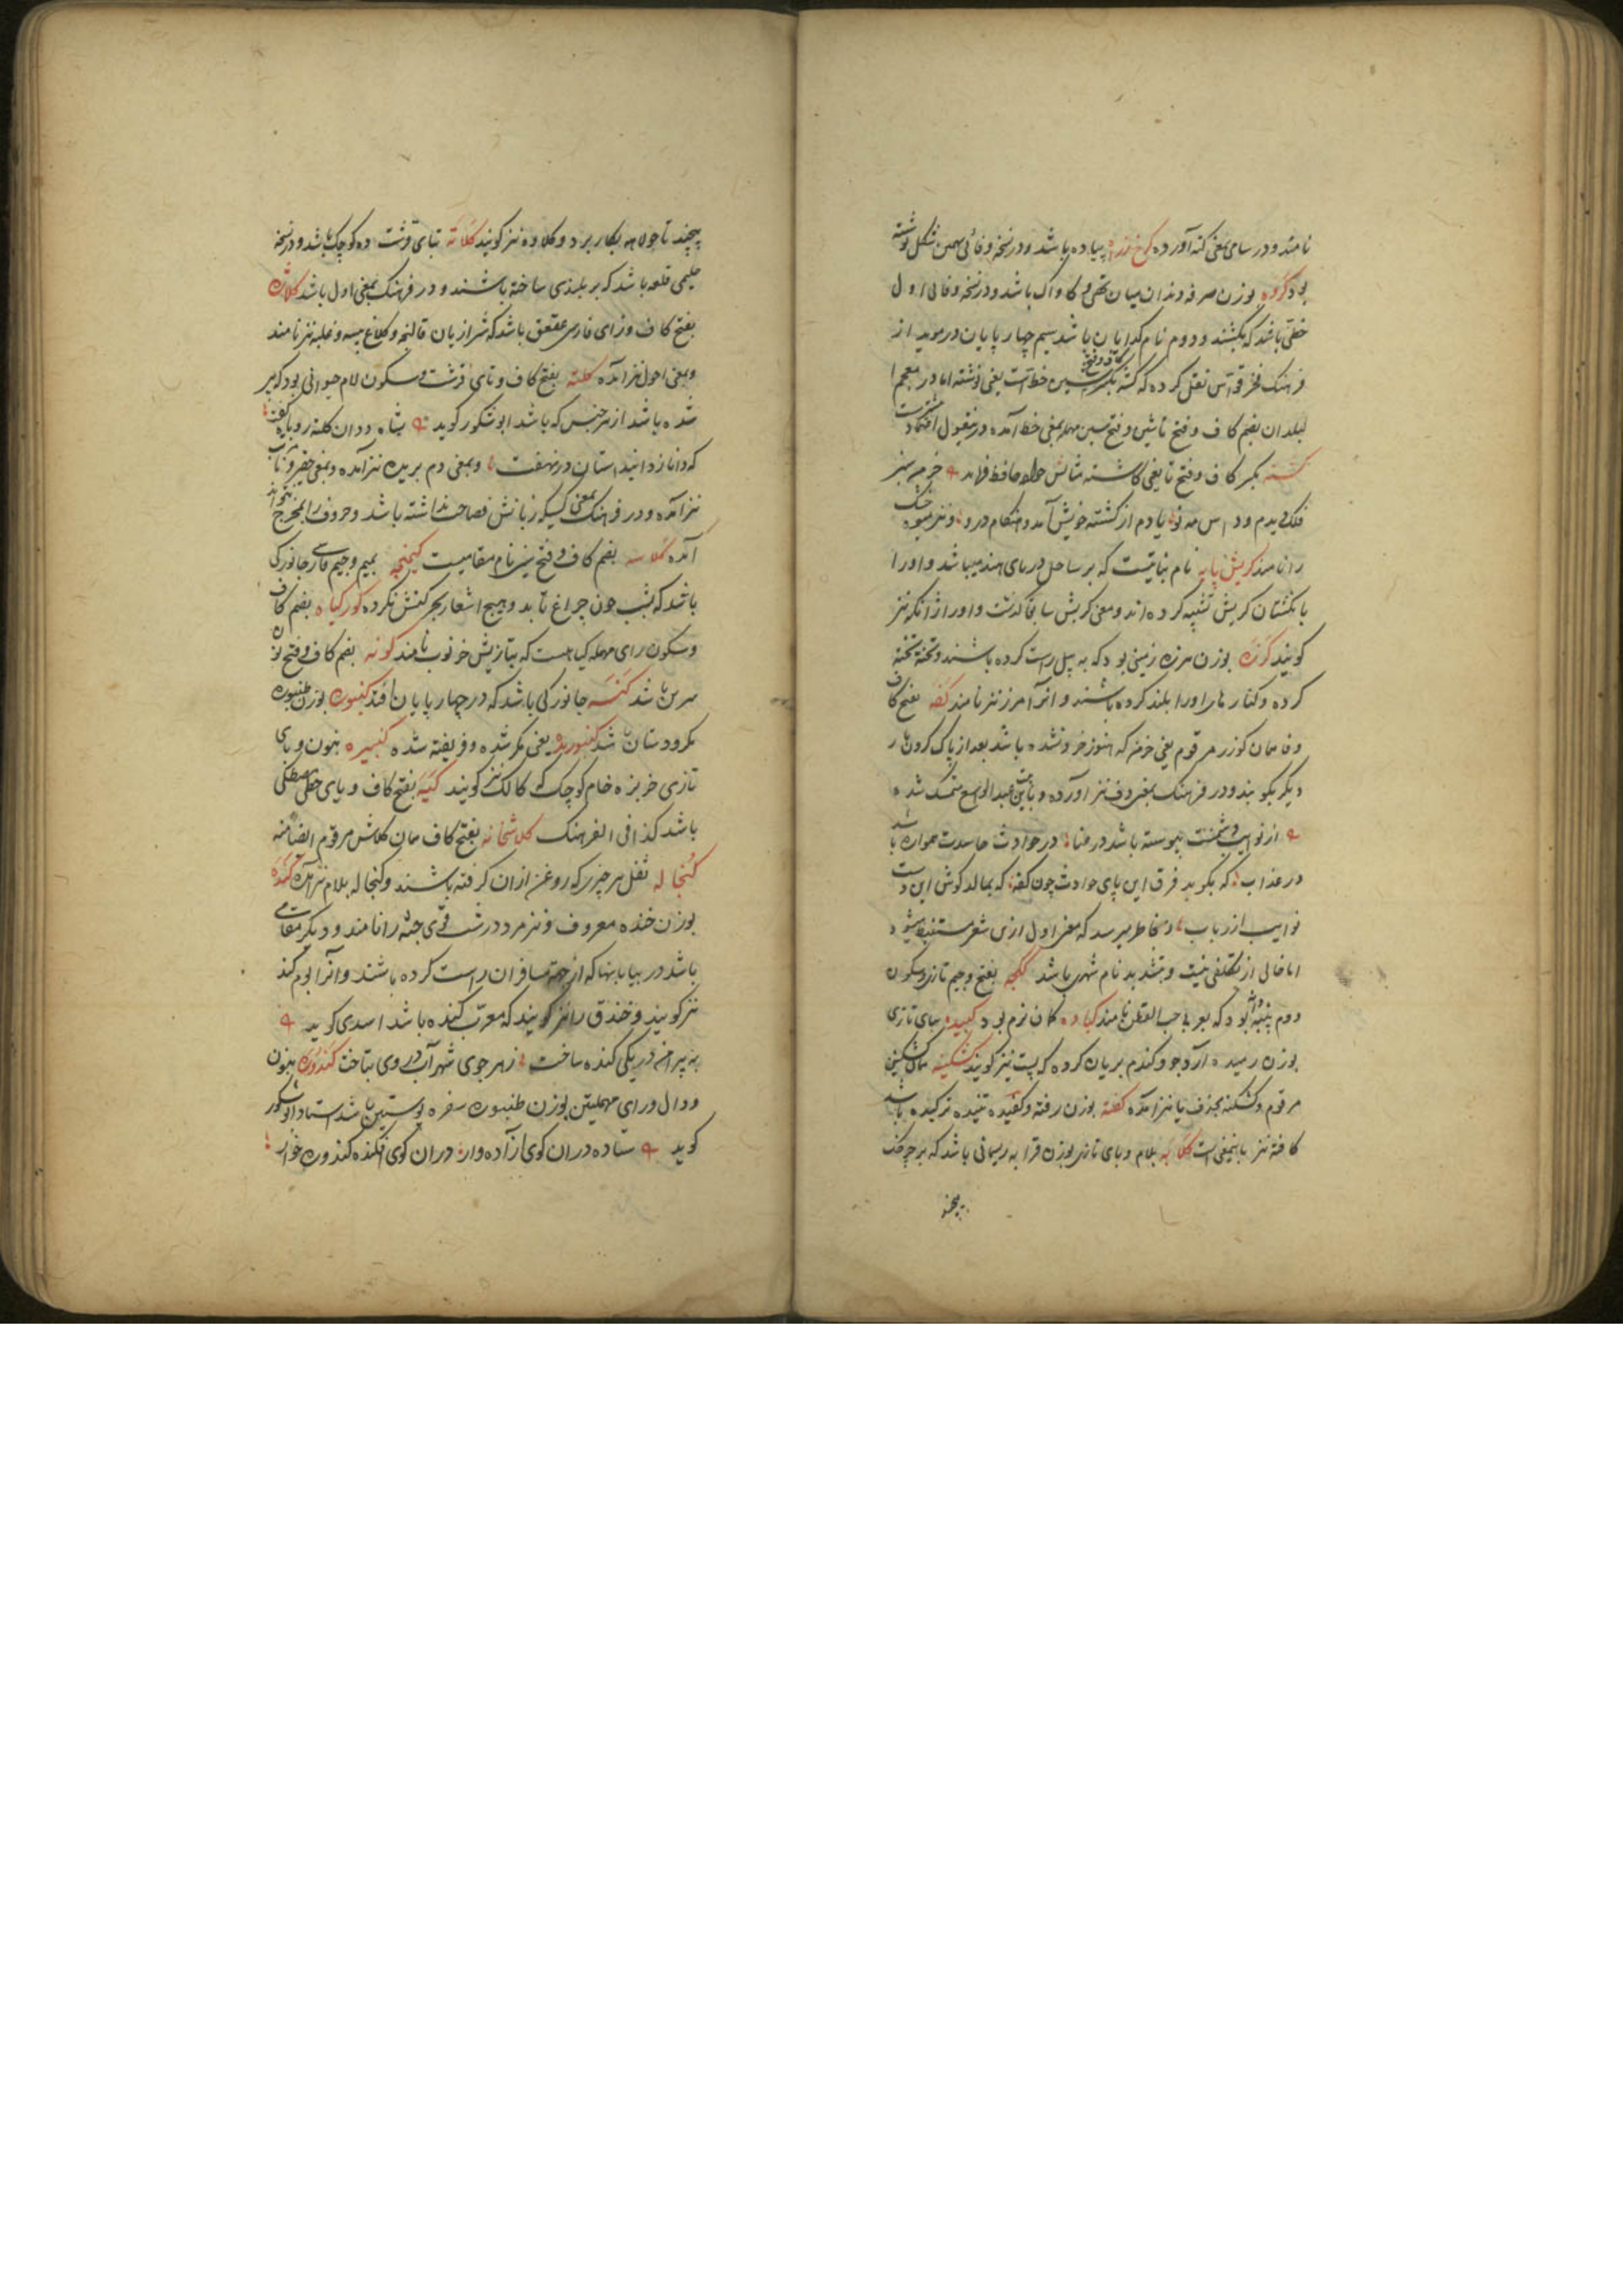 نامند و در سامی بمعنی کنه آورده کخ ژنده پیاده باشد و در نسخه وفائی بهمین شکل نوشته
بود کروه بوزن صرفه دندان میان تهی و کاواک باشد و در نسخه وفائی اول
خطی باشد که بکشند و دوم نام کدایان باشد سیم چهار پایان در موید از
فرهنک فخر قواس نقل کرده که کسته بکسر سین خط است یعنی نوشته اما در معجم ا
لبلدان بضم کاف و فتح تا شین و فتح سین مهمله بمعنی خط آمده و بر منقول اعتماد است
کشته بکسر کاف و فتح تا یعنی کاشته مثالش خواجه حافظ فرماید مزرع سبز
فلک دیدم و داس مه نو یادم از کشته خویش آمد و هنکام درو و نیز میوه خشک
را نامند کریش پایه نام نباتیست که بر ساحل دریای هند میباشد و او را
بانکشتان کریش تشبیه کرده اند و معنی کریش سابقا کذشت و او را
کویند کرزه بوزن هرزه زمینی بود که به بیل راست کرده باشند و تخته تخته
کرده و کنارهای او را بلند کرده باشند و آنرا مرز نیز نامند کفه بفتح کاف
و فا همان کوزر مرقوم یعنی خوشه که هنوز خرد نشده باشد بعد از پاک کردن بار
دیکر بکوبند و در فرهنک بمعنی دف نیز آورده و باین بیت عبدالواسع متمسک شده
از نوایب دشمنت پیوسته باشد در عنا در حوادث حاسدت همواره باشد
در عذاب که بکوبد فرق این پای حوادث چون کفه که بمالد کوش این دست
نوایب از رباب و بخاطر میرسد که معنی اول ازین شعر مستنبط میشود
اما خالی از تکلفی نیست و بتشدید نام شهری باشد کجه بفتح و جیم تازی و سکون
دوم پنبه دانه بود که بعربی حب القطن نامند کباده کمان نرم بود کبیده ببای تازی
بوزن رسیده آرد جو و کندم بریان کرده که پست نیز کویند کشکینه نان کشکین
مرقوم و کشکنه بحذف یا نیز آمده کفته بوزن رفته و کفیده تنیده ترکیده باشد
کافته نیز باینمعنی است کلابه بلام و بای تازی بوزن قرابه ریسمانی باشد که بر چرخ
پیچند
پیچند تا جولاهه بکار برد و کلاوه نیز کویند کلاته بتای قرشت ده کوچک باشد و در نسخه
حلیمی قلعه باشد که بر بلندی ساخته باشند و در فرهنک بمعنی اول باشد کلاژه
بفتح کاف و زای فارسی عقعق باشد که شیرازیان قالنجه و کلاغ پیسه و غلبه نیز نامند
و بمعنی احول نیز آمده کلته بفتح کاف و تای قرشت و سکون لام حیوانی بود که پیر
شده باشد از هر جنس که باشد ابو شکور کوید شاه ددان کلته روباه کفت
که دانا زد این داستان در نهفت و بمعنی دم بریده نیز آمده و بمعنی حقیر و ناقص
نیز آمده و در فرهنک بمعنی کسیکه زبانش فصاحت نداشته باشد و حروف را بمخرج نتواند
آمده کلاسه بضم کاف و فتح سین نام مقامیست کمنجه بمیم و جیم فارسی جانورکی
باشد که بشب چون چراغ تابد و هیچ اشعار بحرکتش نکرده کورکیاه بضم کاف
و سکون رای مهمله کیاهیست که بتازیش خرنوب نامند کونه بضم کاف و فتح نون
سرین باشد کنسه جانورکی باشد که در چهار پایان افتد کنبوره بوزن طنبوره
مکر و دستان باشد کنبوریده یعنی مکر شده و فریفته شده کنبیره بنون و بای
تازی خربزه خام کوچک که کالک نیز کویند کیه بفتح کاف و یای حطی مصطکی
باشد کذا فی الفرهنک کلاشخانه بفتح کاف همان کلاش مرقوم ایضا منه
کنجاله ثفل هر چیزی که روغن ازان کرفته باشند و کنجاله بلام نیز آمده کنده
بوزن خنده معروف و نیز مرد درشت قوی جثه را نامند و دیکر مقامی
باشد در بیابانها که از جهة مسافران راست کرده باشند و آنرا بوم کند
نیز کویند و خندق را نیز کویند که معرب کنده باشد اسدی کوید
به پیرامنش در یکی کنده ساخت ز هر جوی شهر آب در وی بتاخت کندوره بنون
و دال و رای مهملتین بوزن طنبوره سفره پوستین باشد استاد ابوشکور
کوید ستاده دران کوی آزاده وار دران کوی افکنده کندوره خوار